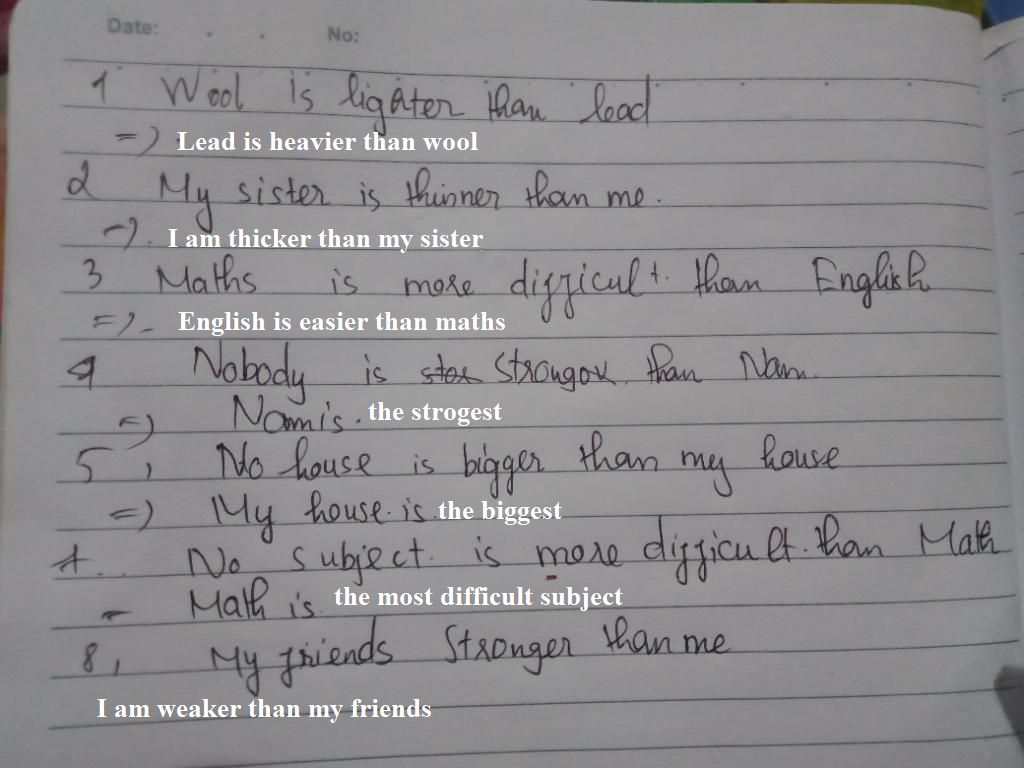 Date: . . No:
1 Wool is lighter than lead
=) Lead is heavier than wool
2 My sister is thinner than me.
-). I am thicker than my sister
3 Maths is more difficult. than English
=)- English is easier than maths
4 Nobody is stor strongor than Nam.
=) Nam is. the strogest
5, No house is bigger than my house
=) My house is the biggest
7.. No subject. is more difficult. than Math
- Math is. the most difficult subject
8, My friends stronger than me
I am weaker than my friends